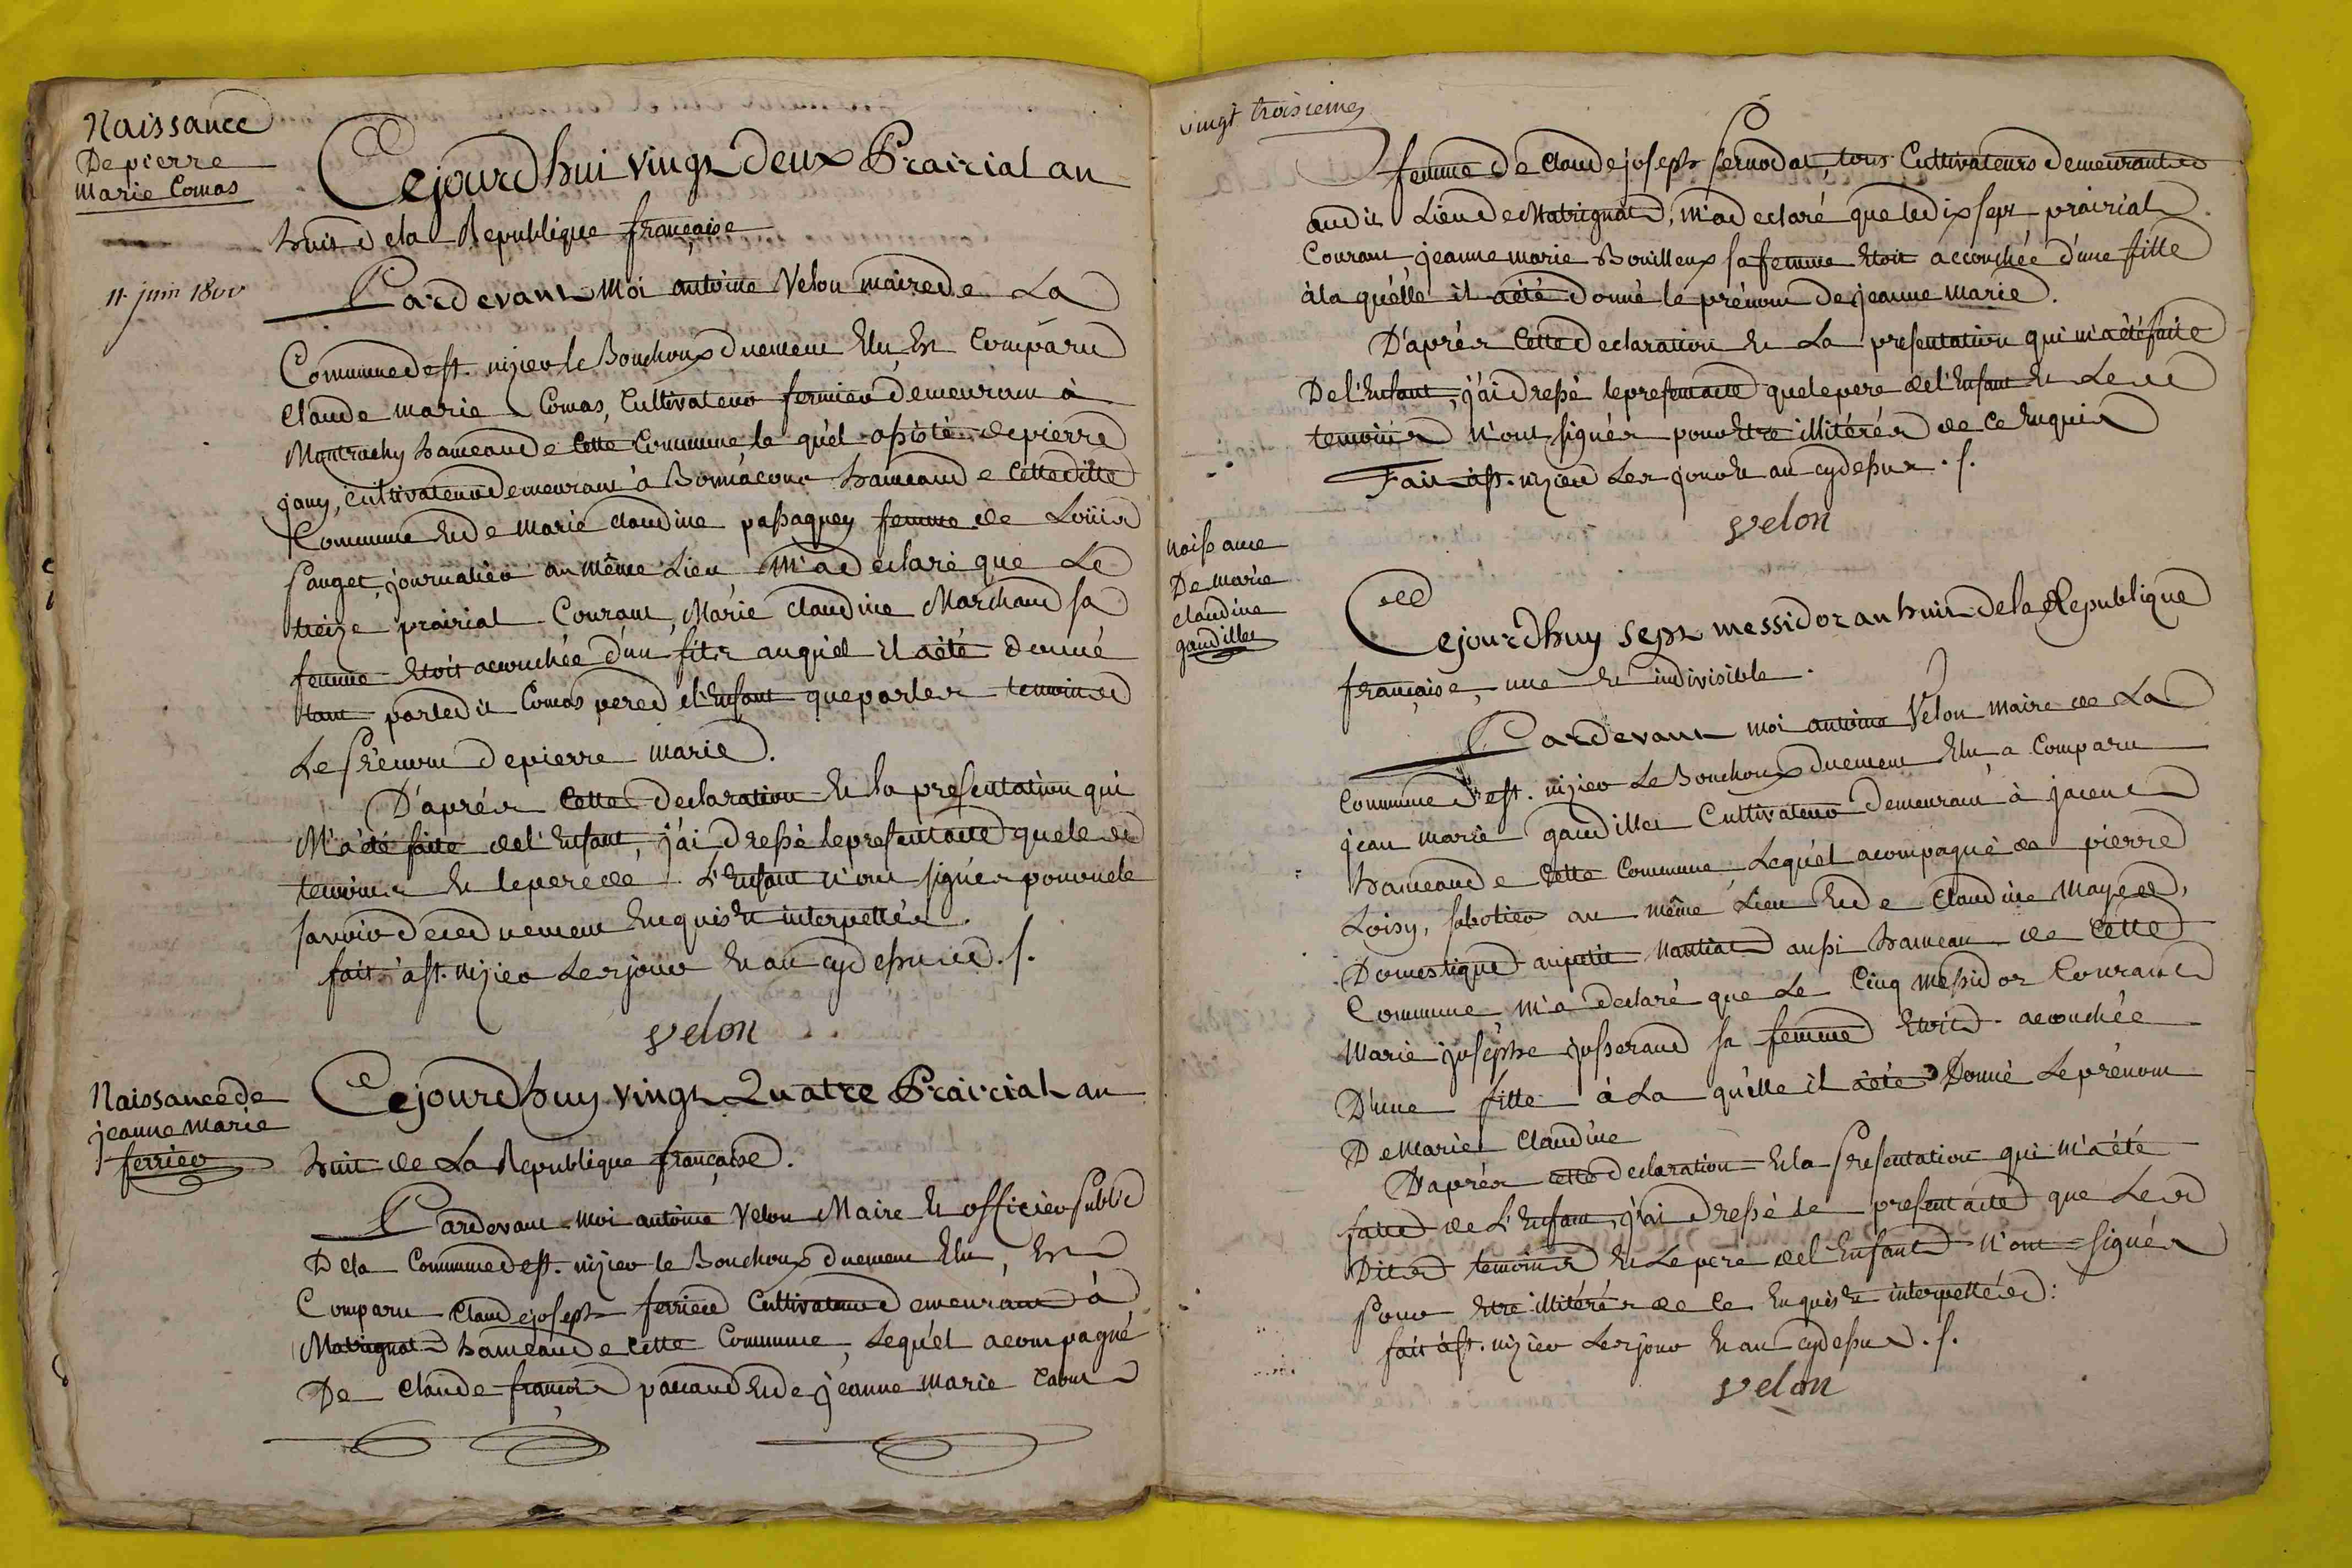 Naissance
De pierre
Marie Comas
11 juin 1800
Cejourdhui vingt Deux Prairial an
huit dela Republique française
Pardevant moi antoine Velon maire de La
Commune de st. nizier le Bouchoux duement Elu Est Comparu
Claude marie Comas, Cultivateur fermier demeurant à
Montrachy hameau de Cette Commune, le quel assisté de pierre
jany, cultivateur demeurant à Bonnacour hameau de Cette ditte
Commune Et de Marie claudine passaquey femme de Loüis
journalier au même Lieu M'a declaré que Le
treize prairial Courant, Marie claudine Marchand sa
femme Etoit acouchée d'un fils auquel il a été donné
tant par ledit Comas pere de l'Enfant que par les temoins
Le Prénom de pierre marie.
D'après Cette Declaration Et la presentation qui
M'a été faite de l'Enfant, j'ai dressé le present acte que les
temoins Et le pere de L'Enfant n'ont signés pour ne le
savoir de ce duement Enquis Et interpellés.
fait à st. nizier Les jour Et an cy dessus ./.
velon
Naissance de
jeanne Marie
ferrier
Cejourdhuy vingt Quatre Prairial an
huit de La Republique française.
Pardevant moi antoine Velon Maire Et officier Public
De la Commune de st. nizier le Bouchoux duement Elu, Est
Comparu Claude joseph ferrier Cultivateur demeurant à
Matrignat hameau de Cette Commune, Lequel acompagné
De Claude françois pacaud Et de jeanne marie
vingt troisieme
femme De Claude joseph tous Cultivateurs demeurant
audit Lieu de Matrignat, m'a declaré que le dix sept prairial
Courant jeanne marie Bouilloux sa femme Etoit accouchée d'une fille
à la quélle il a été donné le prénom de jeanne marie.
D'après Cette Declaration Et La presentation qui m'a été faite
De l'Enfant, j'ai dressé le present acte que le pere de l'Enfant Et Les
temoins n'ont signés pour Etre illitérés de ce Enquis
Fait à st. nizier Les jour Et an cy dessus ./.
velon
naissance
De marie
claudine
gaudillet
Cejourdhuy sept messidor an huit de la Republique
française, une Et indivisible.
Pardevant moi antoine Velon maire de La
Commune de st. nizier Le Bouchoux duement Elu, a Comparu
jean marie gaudillet Cultivateur demeurant à
hameau de Cette Commune Lequel acompagné de pierre
Loisy, sabotier au même Lieu Et de Claudine
Domestique au petit Nantiat aussi hameau de Cette
Commune m'a declaré que Le Cinq messidor Courant
Marie joséphe josserand sa femme Etoit acouchée
D'une fille à La quélle il a été Donné Le prénom
De Marie Claudine
D'après cette declaration Et la Presentation qui m'a été
faite de L'Enfant, j'ai dressé le present acte que Les
Dits temoins Et Le pere de l'Enfant n'ont signés
Pour Etre illitérés de ce Enquis Et interpellés:
fait à st. nizier Les jour Et an cy dessus ./.
velon